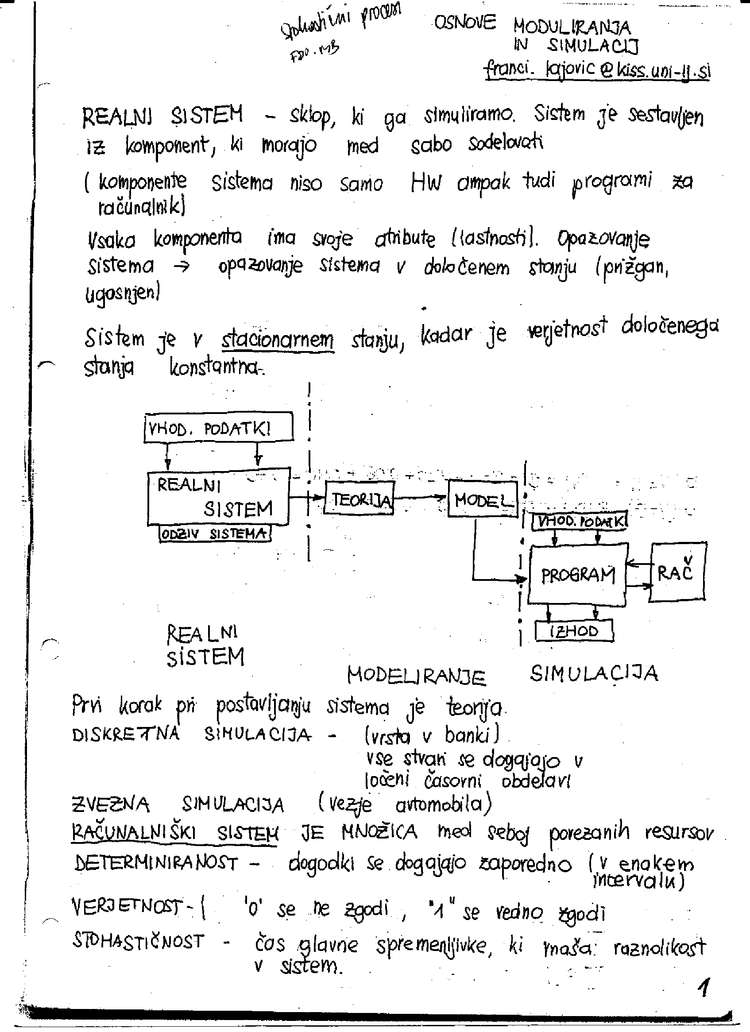 Stohastični procesi
FDO.MB
OSNOVE MODULIRANJA
IN SIMULACIJ
franci.lajovic@kiss.uni-lj.si
REALNI SISTEM - sklop, ki ga simuliramo. Sistem je sestavljen
iz komponent, ki morajo med sabo sodelovati
(komponente sistema niso samo HW ampak tudi programi za
računalnik)
Vsaka komponenta ima svoje atribute (lastnosti). Opazovanje
sistema → opazovanje sistema v določenem stanju (prižgan,
ugasnjen)
Sistem je v stacionarnem stanju, kadar je verjetnost določenega
stanja konstantna.
VHOD. PODATKI
REALNI
SISTEM
ODZIV SISTEMA
TEORIJA
MODEL
VHOD. PODATKI
PROGRAM
RAČ
IZHOD
REALNI
SISTEM
MODELIRANJE
SIMULACIJA
Prvi korak pri postavljanju sistema je teorija.
DISKRETNA SIMULACIJA - (vrsta v banki)
vse stvari se dogajajo v
ločeni časovni obdelavi
ZVEZNA SIMULACIJA (vezje avtomobila)
RAČUNALNIŠKI SISTEM JE MNOŽICA med seboj povezanih resursov
DETERMINIRANOST - dogodki se dogajajo zaporedno (v enakem
intervalu)
VERJETNOST - ( '0' se ne zgodi, "1" se vedno zgodi
STOHASTIČNOST - čas glavne spremenljivke, ki vnaša raznolikost
v sistem.
1